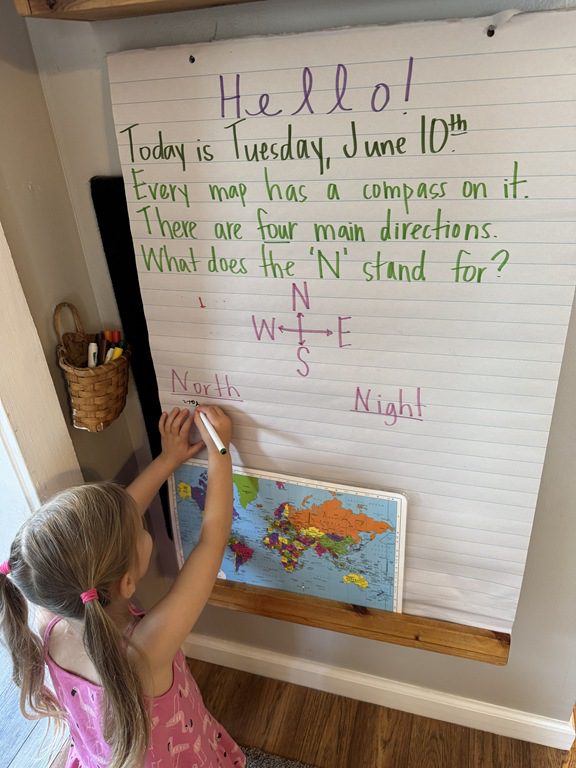 Hello!
Today is Tuesday, June 10th.
Every map has a compass on it.
There are four main directions.
What does the 'N' stand for?
N
W E
S
North Night